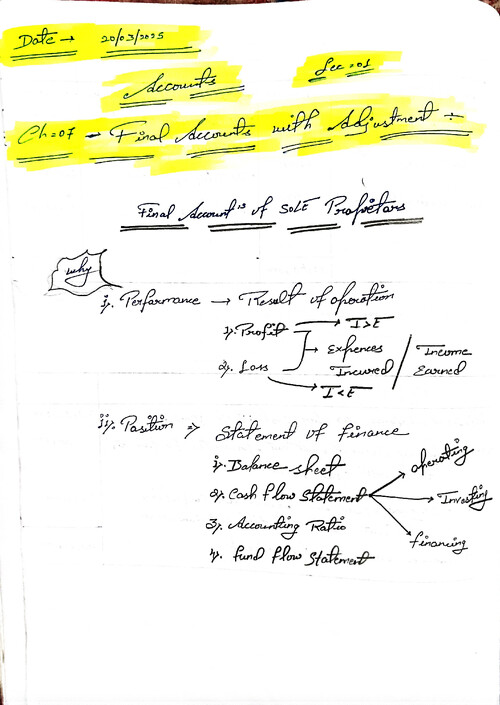 Date → 20/03/2025
Lec = 01
Accounts
Ch=07 - Final Accounts with Adjustment ÷
Final Account's of SOLE Proprietors
why
i). Performance → Result of operation
1). Profit → I>E
→ Expences Incured / Income Earned
2). Loss → I<E
ii). Position ⇒ Statement of finance
1). Balance sheet
2). Cash flow Statement → operating
→ Investing
→ financing
3). Accounting Ratio
4). Fund flow Statement